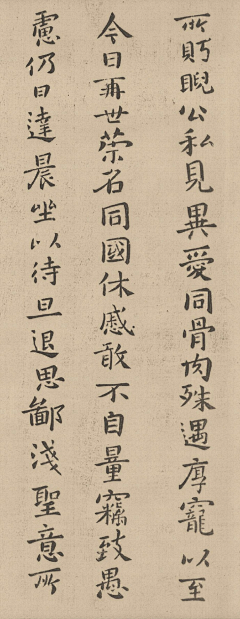 所眄睨公私見異愛同骨肉殊遇厚寵以至
今日再世榮名同國休慼敢不自量竊致愚
慮仍日達晨坐以待旦退思鄙淺聖意所